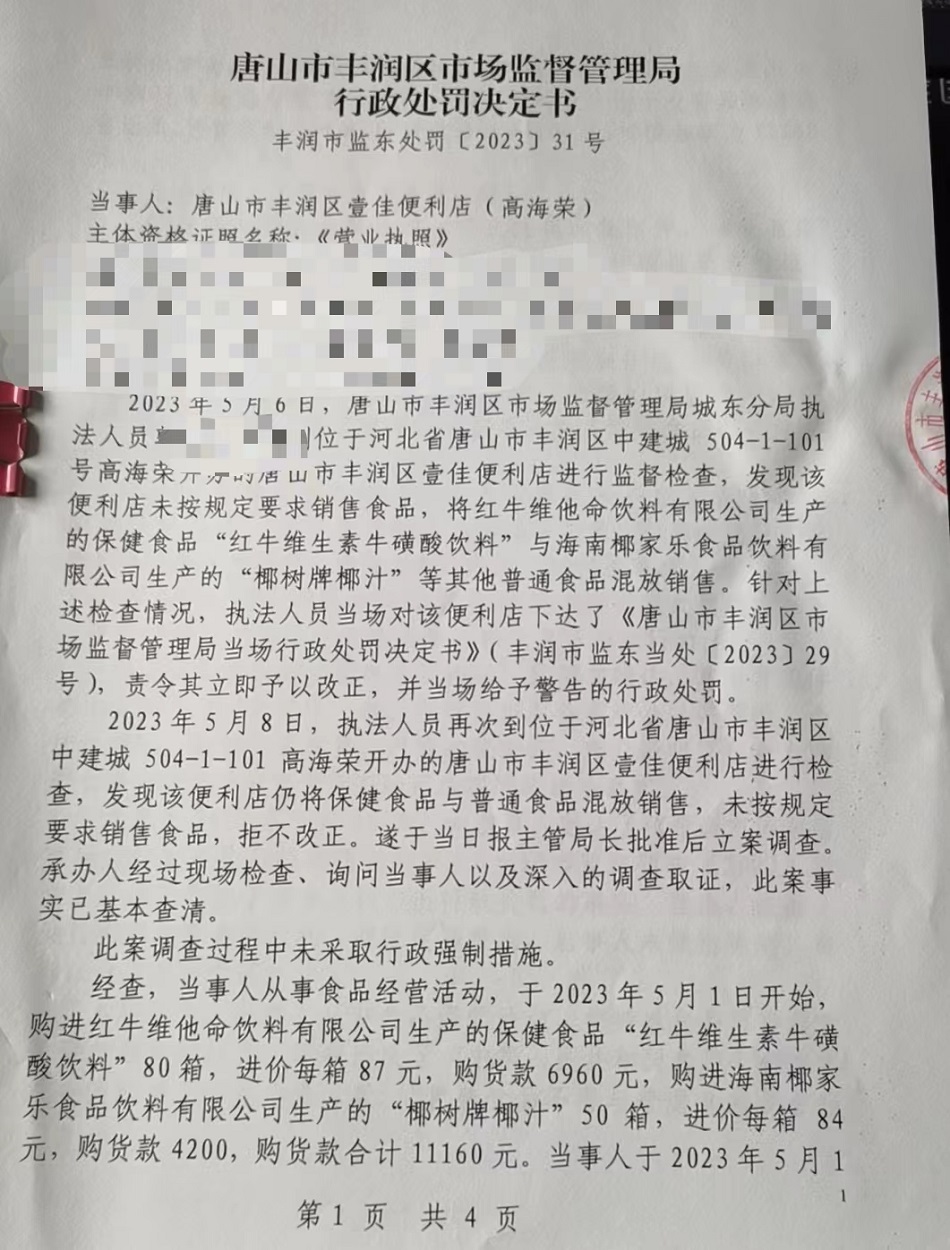 唐山市丰润区市场监督管理局
行政处罚决定书
丰润市监东处罚〔2023〕31号
当事人：唐山市丰润区壹佳便利店（高海荣）
主体资格证照名称：《营业执照》
2023年5月6日，唐山市丰润区市场监督管理局城东分局执
法人员 到位于河北省唐山市丰润区中建城 504-1-101
号高海荣开办的唐山市丰润区壹佳便利店进行监督检查，发现该
便利店未按规定要求销售食品，将红牛维他命饮料有限公司生产
的保健食品“红牛维生素牛磺酸饮料”与海南椰家乐食品饮料有
限公司生产的“椰树牌椰汁”等其他普通食品混放销售。针对上
述检查情况，执法人员当场对该便利店下达了《唐山市丰润区市
场监督管理局当场行政处罚决定书》（丰润市监东当处〔2023〕29
号），责令其立即予以改正，并当场给予警告的行政处罚。
2023年5月8日，执法人员再次到位于河北省唐山市丰润区
中建城 504-1-101 高海荣开办的唐山市丰润区壹佳便利店进行检
查，发现该便利店仍将保健食品与普通食品混放销售，未按规定
要求销售食品，拒不改正。遂于当日报主管局长批准后立案调查。
承办人经过现场检查、询问当事人以及深入的调查取证，此案事
实已基本查清。
此案调查过程中未采取行政强制措施。
经查，当事人从事食品经营活动，于2023年5月1日开始，
购进红牛维他命饮料有限公司生产的保健食品“红牛维生素牛磺
酸饮料”80箱，进价每箱87元，购货款6960元，购进海南椰家
乐食品饮料有限公司生产的“椰树牌椰汁”50 箱，进价每箱 84
元，购货款4200，购货款合计11160元。当事人于2023年5月1
1
第1页 共4页